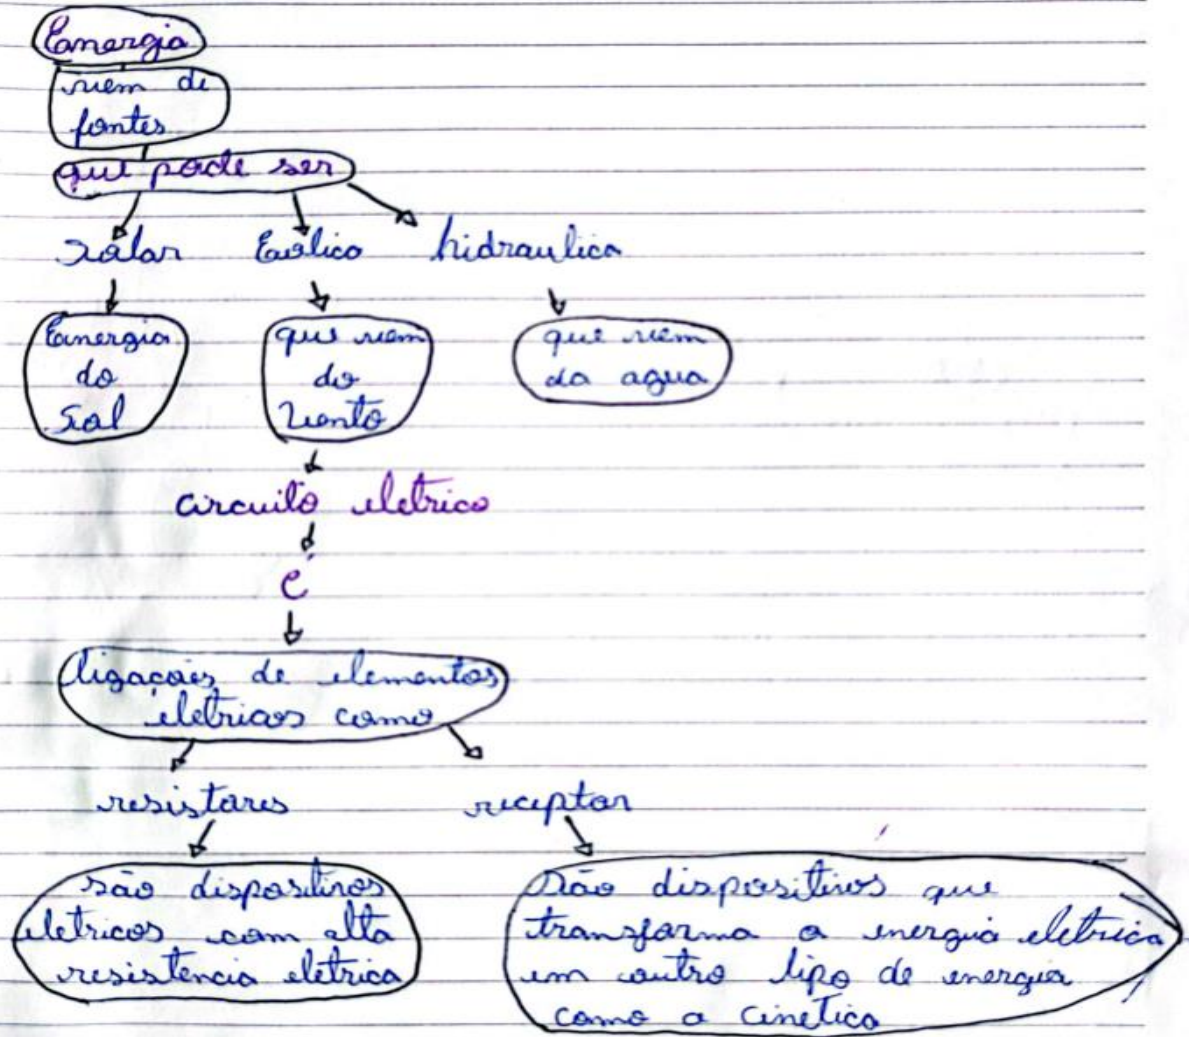 Energia
vem de
fontes
que pode ser
Solar Eolico hidraulica
Energia
do
Sol
que vem
do
Vento
que vem
da agua
circuito eletrico
é
ligações de elementos
eletricos como
resistores receptor
são dispositivos
eletricos com alta
resistencia eletrica
São dispositivos que
transforma a energia eletrica
em outro tipo de energia
como a cinetica